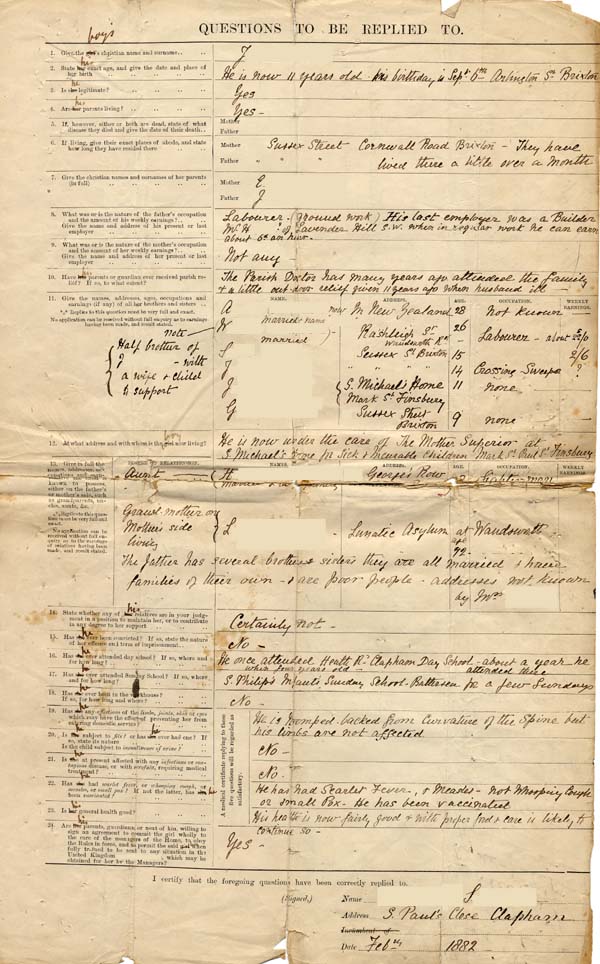 QUESTIONS TO BE REPLIED TO.
boy's
1. Give the girl's christian name and surname
J
his
2. State her exact age, and give the date and place of her birth
He is now 11 years old his birthday is Sept 6th Arlington St. Brixton
he
3. Is she legitimate?
Yes
his
4. Are her parents living?
Yes -
5. If, however, either or both are dead, state of what disease they died and give the date of their death
Mother
Father
6. If living, give their exact places of abode, and state how long they have resided there
Mother Sussex Street Cornwall Road Brixton - They have
Father " " " lived there a little over a month
7. Give the christian names and surnames of her parents (in full)
Mother E.
Father J
8. What was or is the nature of the father's occupation and the amount of his weekly earnings?
Give the name and address of his present or last employer
Labourer - (ground work) His last employer was a Builder
Mr H of Lavender Hill S.W. when in regular work he can earn
about 6d an hour.
9. What was or is the nature of the mother's occupation and the amount of her weekly earnings?
Give the name and address of her present or last employer
Not any -
10. Have her parents or guardian ever received parish relief? If so, to what extent?
The Parish Doctor has many years ago attended the family
& a little out-door relief given 11 years ago when husband ill -
11. Give the names, addresses, ages, occupations, and earnings (if any) of all her brothers and sisters
Replies to this question must be very full and exact.
No application can be received without full enquiry as to earnings having been made, and result stated.
NAME. ADDRESS. AGE. OCCUPATION. WEEKLY EARNINGS.
A now In New Zealand 28 Not known -
W married name Rashleigh St. 26
married Wandsworth Rd Labourer - about 25/0
S Sussex St Brixton 15 2/6
J " " " 14 Crossing Sweeper ?
J S. Michael's Home 11 none
Mark St. Finsbury
G Sussex Street 9 none -
Brixton
note -
Half brother of
J - with
a wife & child
to support
boy
12. At what address and with whom is the girl now living?
He is now under the care of The Mother Superior at
S. Michael's Home for Sick & Incurable Children Mark St. Paul St. Finsbury
13. Give in full the
DEGREE OF RELATIONSHIP. NAMES. ADDRESS. AGE. OCCUPATION. WEEKLY EARNINGS.
Aunt H George's Row
Grand mother on
Mother's side L - Lunatic Asylum at Wandsworth -
living age 72 -
The father has several brothers & sisters they are all married & have
families of their own - & are poor people - addresses not known
by Mrs
his
14. State whether any of her relatives are in your judgment in a position to maintain her, or to contribute in any degree to her support
Certainly not -
he
15. Has she ever been convicted? If so, state the nature of her offence and term of imprisonment
No -
he
16. Has she ever attended day school? If so, where and for how long?
He once attended Heath Rd. Clapham Day School - about a year he
when four years old attended there
he
17. Has she ever attended Sunday School? If so, where, and for how long?
S. Philip's Infants Sunday School - Battersea for a few Sundays
he
18. Has she ever been in the workhouse? If so, for how long and where?
No -
he
19. Has she any affections of the limbs, joints, skin or eyes which may have the effect of preventing her from entering domestic service?
He is humped-backed from Curvature of the Spine but
his limbs are not affected
he he
20. Is she subject to fits? or has she ever had one? If so, state its nature
Is the child subject to incontinence of urine?
No -
he
21. Is she at present affected with any infectious or contagious disease, or with scrofula, requiring medical treatment?
No.
he
22. Has she had scarlet fever, or whooping cough, or measles, or small pox? If not the latter, has she been vaccinated?
He has had Scarlet Fever, & Measles - not Whooping Cough
or small Pox - He has been vaccinated
his
23. Is her general health good?
His health is now fairly good & with proper food & care is likely to
continue so -
his
24. Are her parents, guardians, or next of kin, willing to sign an agreement to commit the girl wholly to the care of the managers of the Home, to obey the Rules in force, and to permit the said girl when fully trained to be sent to any situation in the United Kingdom which may be obtained for her by the Managers?
Yes -
A medical certificate replying to these five questions will be regarded as satisfactory.
I certify that the foregoing questions have been correctly replied to.
(Signed,) Name S.
Address S. Paul's Close Clapham
Incumbent of
Date Feby 1882